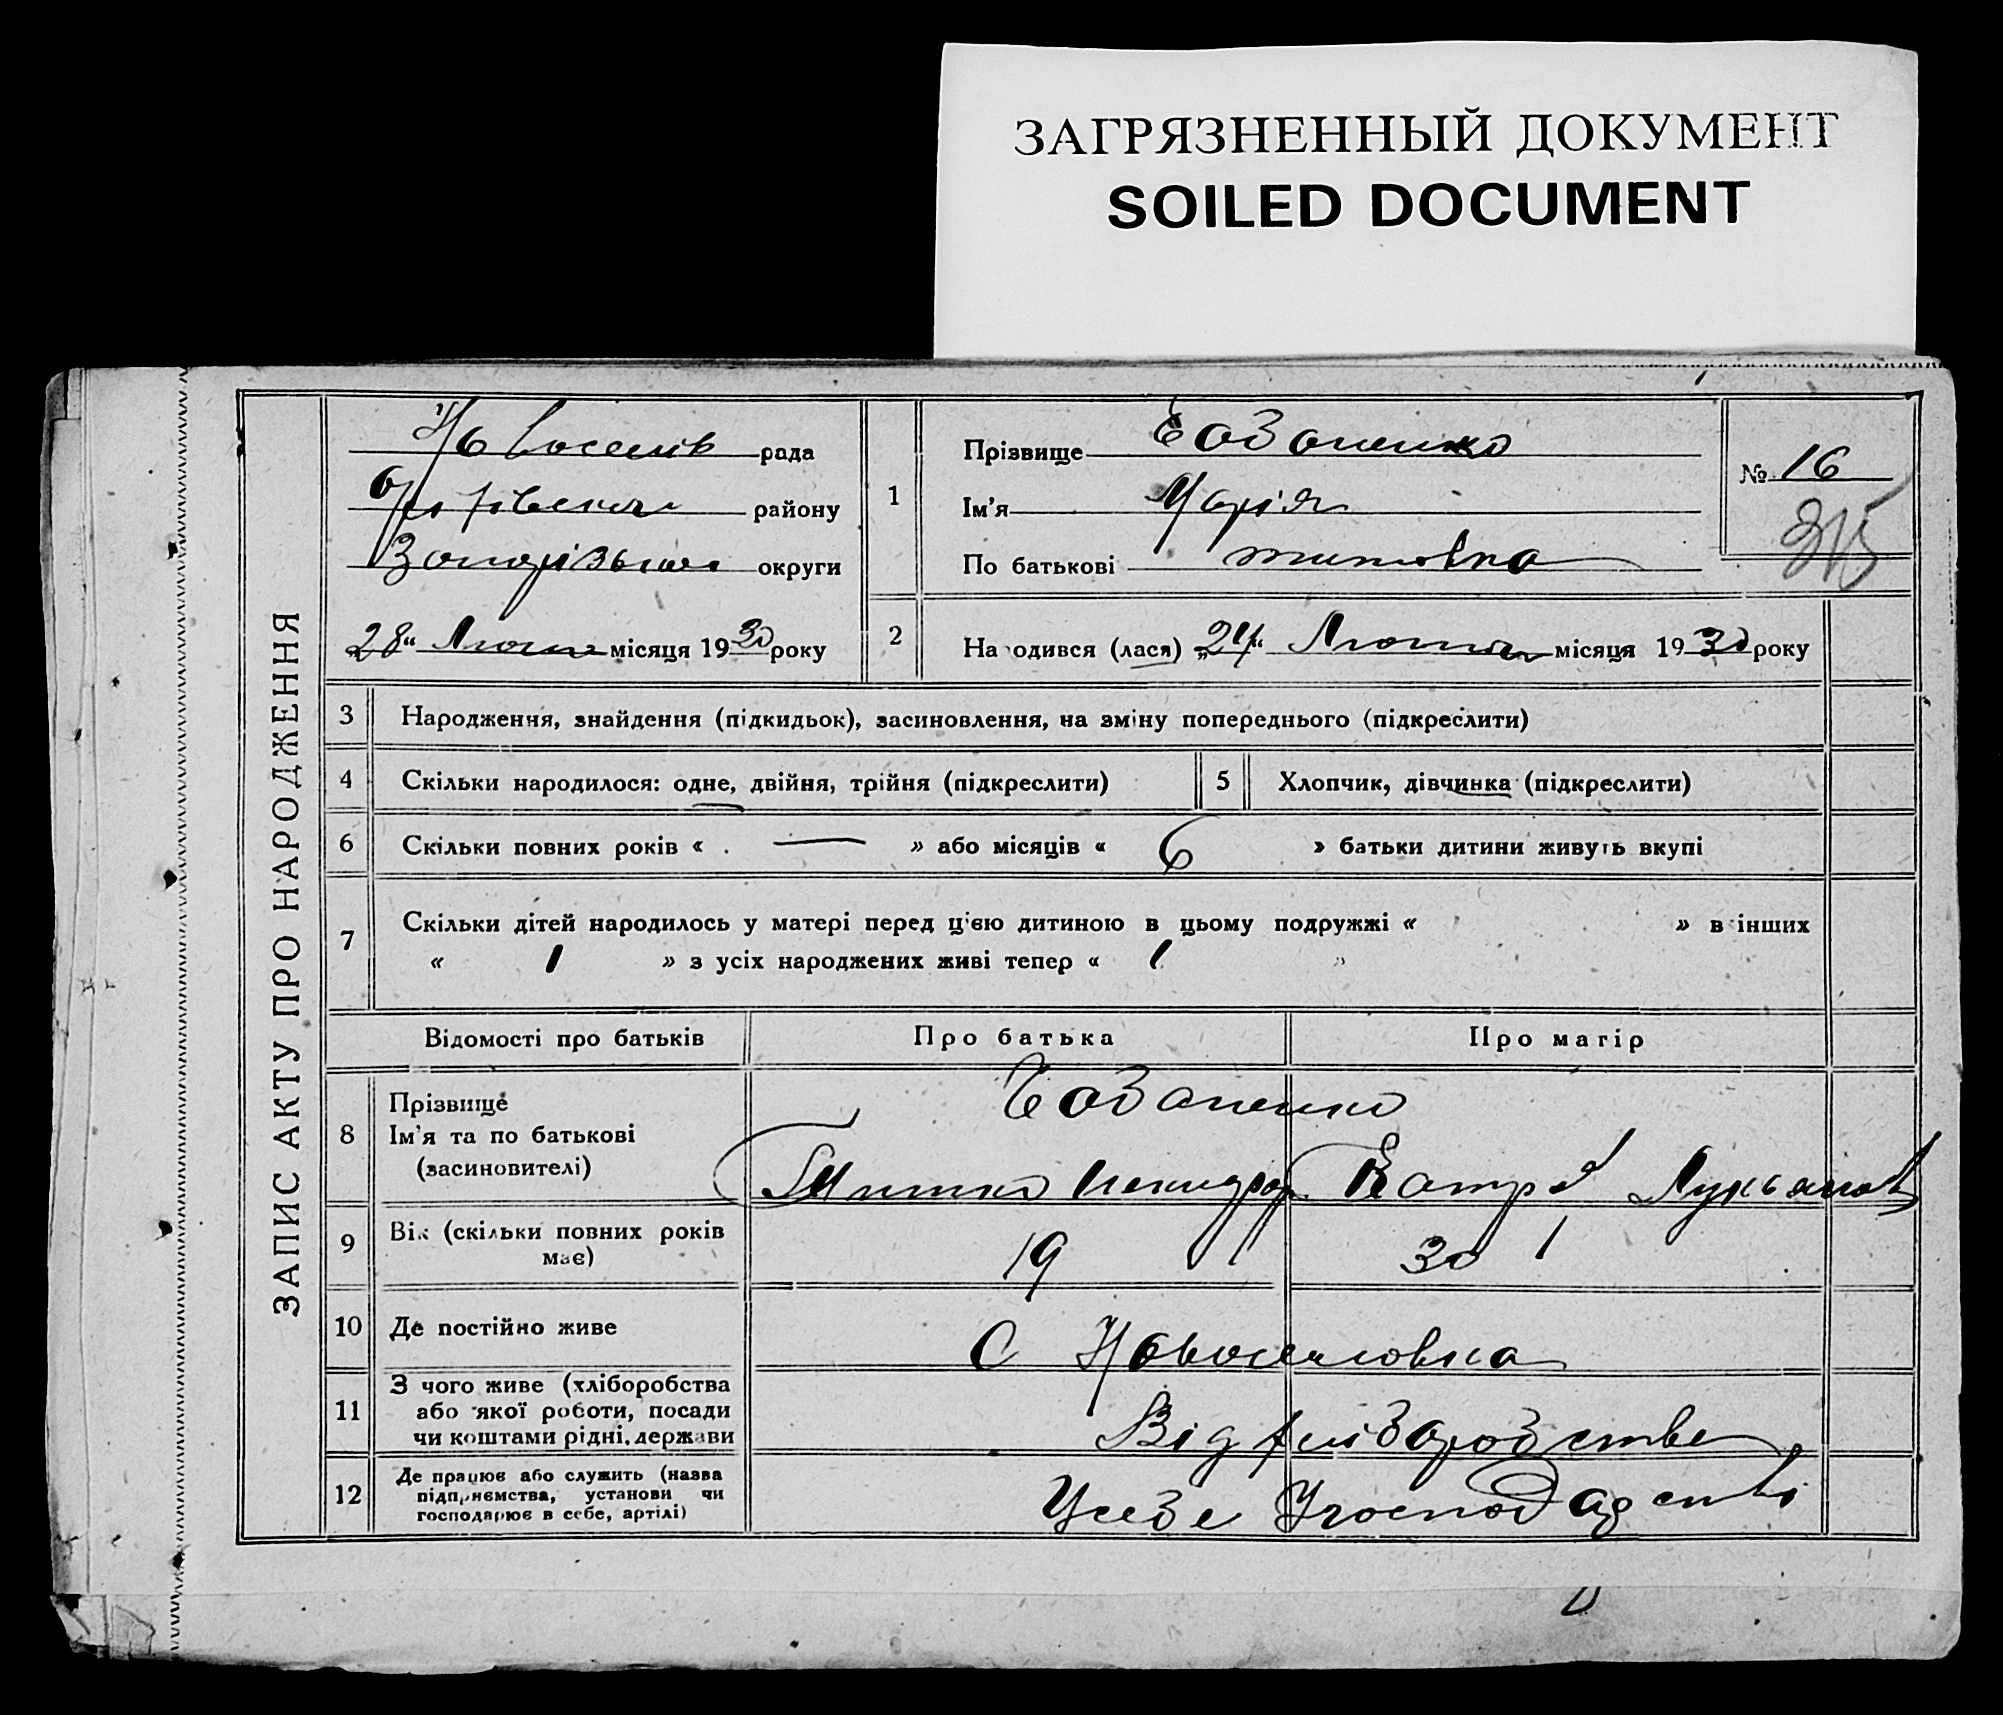 ЗАГРЯЗНЕННЫЙ ДОКУМЕНТ
SOILED DOCUMENT
ЗАПИС АКТУ ПРО НАРОДЖЕННЯ
Новоселів рада
району
Запорізької округи
28 Лютого місяця 1930 року
1
Прізвище
Ім'я Марія
По батькові
№ 16
315
2
Народився (лася) „24“ Лютого місяця 1930 року
3 Народження, знайдення (підкидьок), засиновлення, на зміну попереднього (підкреслити)
4 Скільки народилося: одне, двійня, трійня (підкреслити)
5 Хлопчик, дівчинка (підкреслити)
6 Скільки повних років « — » або місяців « 6 » батьки дитини живуть вкупі
7 Скільки дітей народилось у матері перед цією дитиною в цьому подружжі « » в інших
« 1 » з усіх народжених живі тепер « 1 »
Відомості про батьків Про батька Про матір
8 Прізвище
Ім'я та по батькові
(засиновителі)
9 Вік (скільки повних років
має) 19 30
10 Де постійно живе С Новоселовка
11 З чого живе (хліборобства
або якої роботи, посади
чи коштами рідні, держави Від хліборобства
12 Де працює або служить (назва
підприємства, установи чи
господарює в себе, артілі) У себе